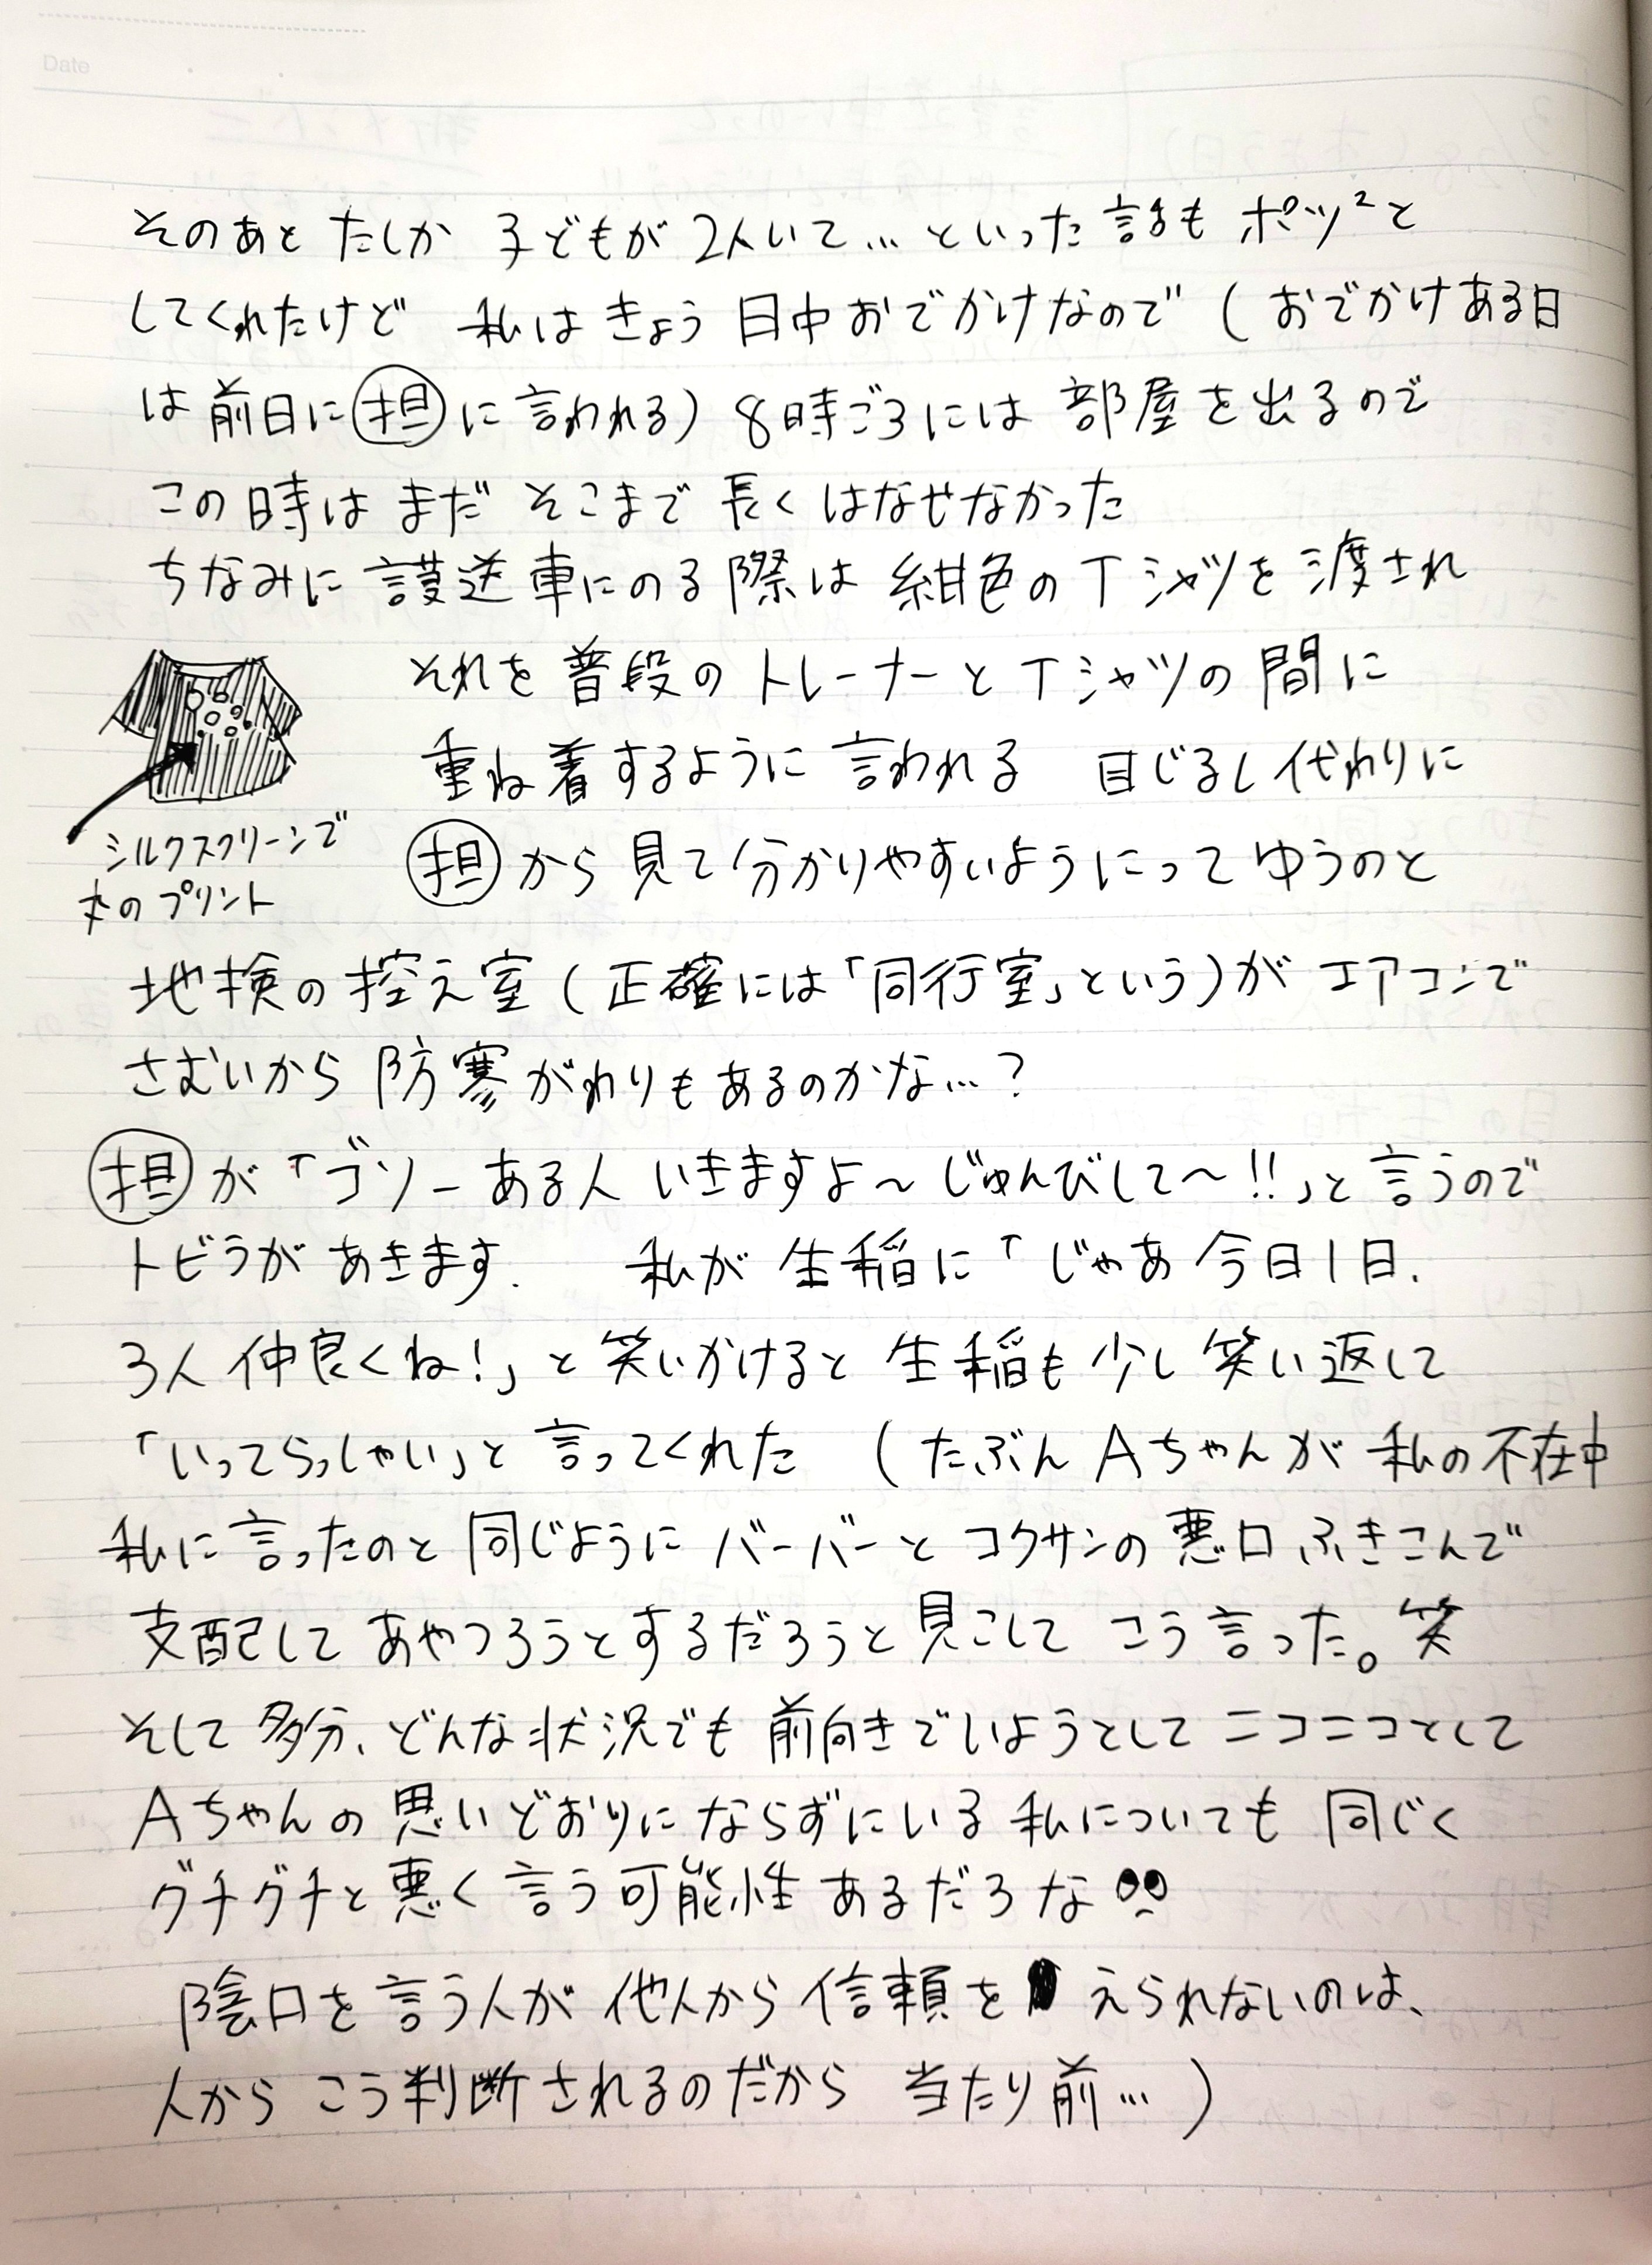 Date
そのあと たしか 子どもが 2人いて… といった 話も ポツ²と
してくれたけど 私は きょう 日中おでかけなので (おでかけある日
は 前日に 担 に 言われる) 8時ごろには 部屋を出るので
この時は まだ そこまで 長く はなせなかった
ちなみに 護送車にのる際は 紺色のTシャツを渡され
それを 普段の トレーナーとTシャツの 間に
重ね着するように 言われる 目じるし代わりに
シルクスクリーンで
丸のプリント
担 から 見て分かりやすいようにってゆうのと
地検の控え室 (正確には「同行室」という) が エアコンで
さむいから 防寒がわりもあるのかな…?
担 が「ゴソーある人 いきますよ〜 じゅんびして〜!!」と 言うので
トビラが あきます. 私が 生稲に「じゃあ 今日1日.
3人 仲良くね!」と 笑いかけると 生稲も 少し 笑い返して
「いってらっしゃい」と 言ってくれた (たぶん Aちゃんが 私の不在中
私に言ったのと 同じように バーバーと コクサンの 悪口ふきこんで
支配して あやつろうとするだろうと 見こして こう言った。笑
そして 多分、どんな状況でも 前向きでいようとして ニコニコとして
Aちゃんの 思いどおりにならずにいる 私についても 同じく
グチグチと 悪く 言う可能性 あるだろな
陰口を 言う人が 他人から 信頼を えられないのは、
人から こう判断されるのだから 当たり前…)